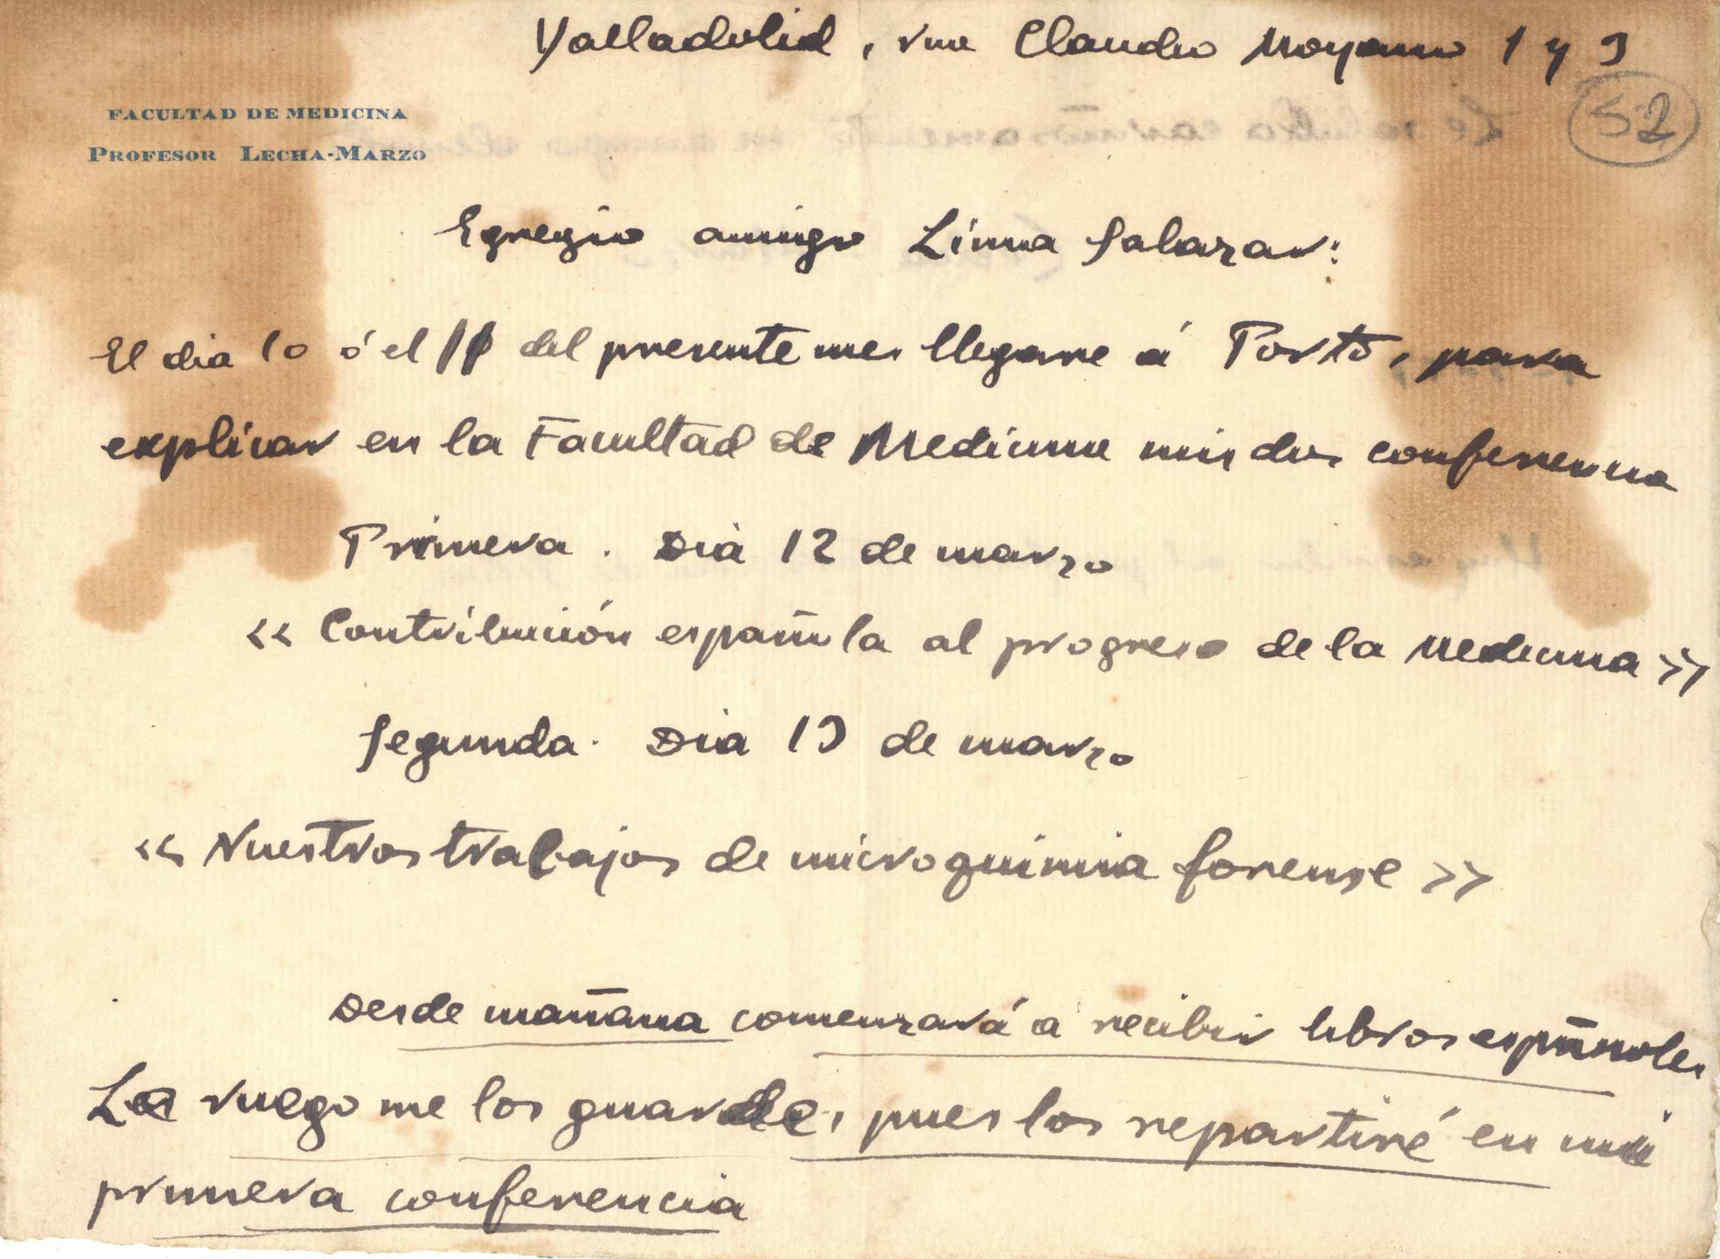 Valladolid, rue Claudio Moyano 1 y 3
52
FACULTAD DE MEDICINA
PROFESOR LECHA-MARZO
Egregio amigo Lima Salazar:
El dia 10 ó el 11 del presente mes llegare á Porto, para
explicar en la Facultad de Medicina mis dos conferencia
Primera. Dia 12 de marzo
<< Contribución española al progreso de la Medicina >>
Segunda. Dia 13 de marzo
<< Nuestros trabajos de microquimia forense >>
Desde mañana comenzará a recibir libros españoles
Le ruego me los guarde, pues los repartiré en mi
primera conferencia